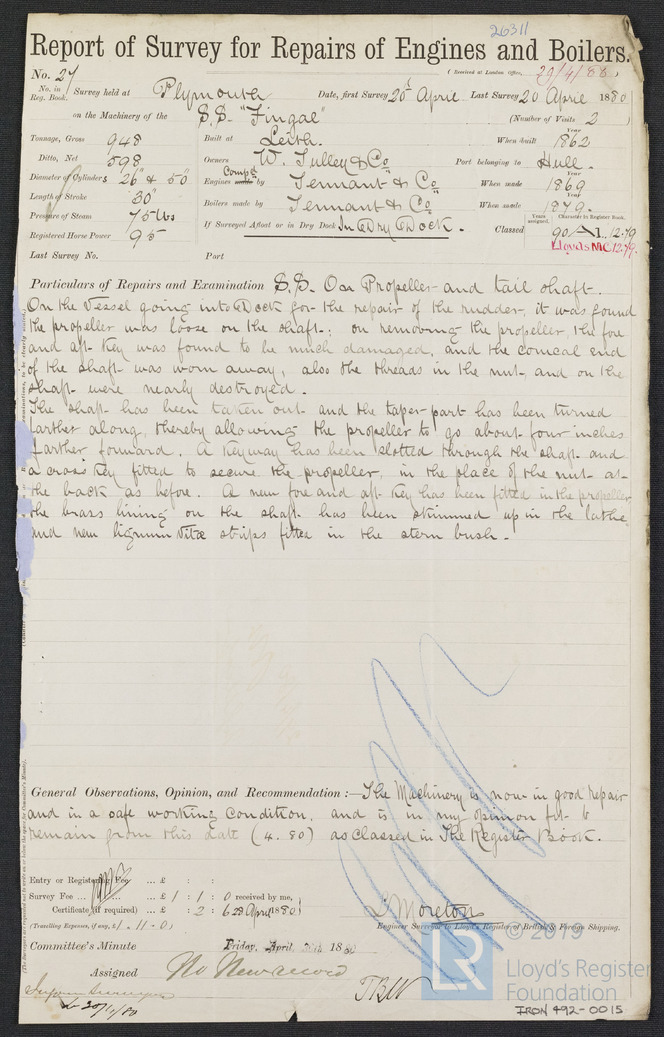 26311
Report of Survey for Repairs of Engines and Boilers.
No. 27 (Received at London Office,
No. in Reg. Book. Survey held at Plymouth Date, first Survey 20th April Last Survey 20 April 1880
on the Machinery of the S.S. "Fingal" (Number of Visits 2
Tonnage, Gross 948 Built at Leith. When built 1862
Ditto, Net 598 Owners W. Tulley & Co Port belonging to Hull.
Diameter of Cylinders 26" & 50" Engines made by Compd Tennant & Co When made 1869
Length of Stroke 30" Boilers made by Tennant & Co When made 1879.
Pressure of Steam 75 lbs If Surveyed Afloat or in Dry Dock In Dry Dock. Classed 90 A1. 12.79
Registered Horse Power 95 Lloyds MC 12.79.
Years assigned. Character in Register Book.
Last Survey No. Port
Particulars of Repairs and Examination S.S. On Propeller and tail shaft.
On the Vessel going into Dock for the repair of the rudder, it was found
the propeller was loose on the shaft; on removing the propeller, the fore
and aft key was found to be much damaged, and the conical end
of the shaft was worn away, also the threads in the nut, and on the
shaft were nearly destroyed.
The shaft has been taken out and the taper part has been turned
farther along, thereby allowing the propeller to go about four inches
farther forward. A keyway has been slotted through the shaft and
a cross key fitted to secure the propeller, in the place of the nut at
the back as before. A new fore and aft key has been fitted in the propeller
the brass lining on the shaft has been skimmed up in the lathe
and new lignum Vitæ strips fitted in the stern bush.
General Observations, Opinion, and Recommendation :—The Machinery is now in good repair
and in a safe working condition, and is in my opinion fit to
remain from this date (4.80) as Classed in The Register Book.
Entry or Registering Fee ... £ : :
Survey Fee ... ... £ 1 : 1 : 0 received by me,
Certificate (if required) ... £ : 2 : 6 28 April 1880
(Travelling Expenses, if any, £1. 11. 0)
Moreton
Engineer Surveyor to Lloyd's Register of British & Foreign Shipping.
Committee's Minute Friday, April 1880
Assigned No New record
TBW
© 2019
LR
Lloyd's Register
Foundation
IRON 492-0015